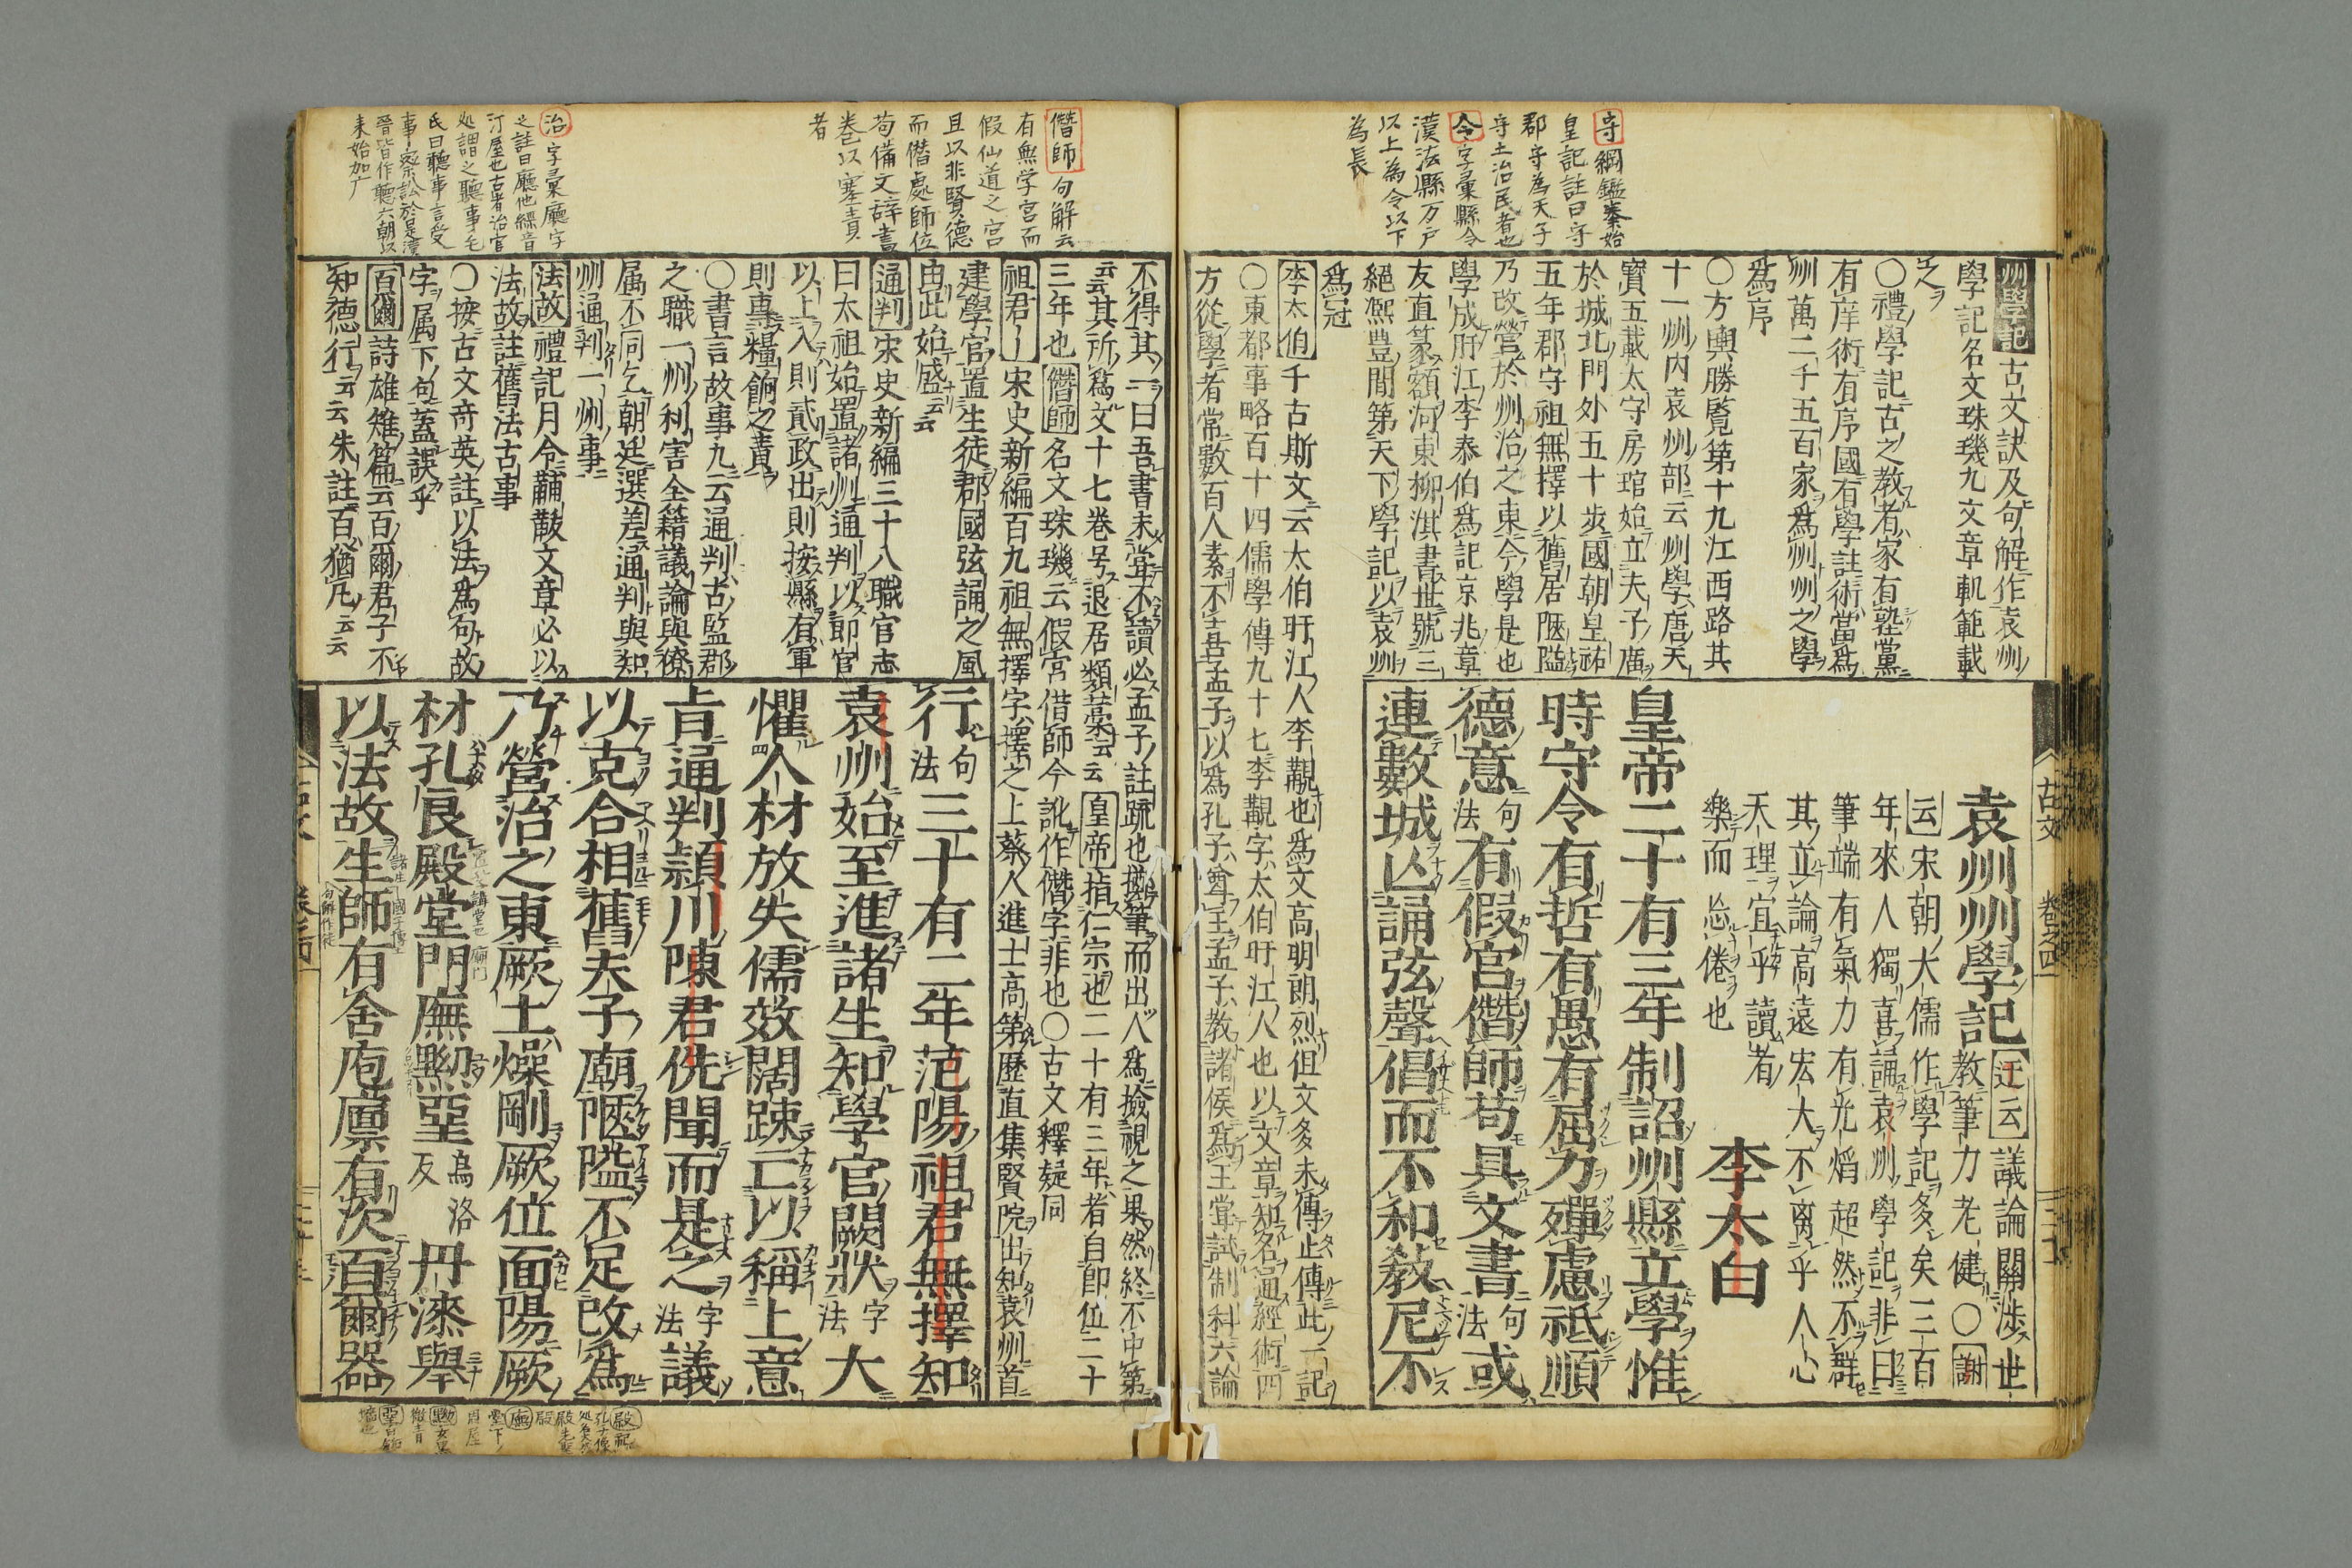 守綱鑑秦始
皇記註曰守
郡守為天子
守土治民者也
令字彙縣令
漢法縣万戸
以上為令以下
為長
州學記古文訣及句解作袁州
學記名文珠璣九文章軌範載
之
○禮學記古之教者家有塾黨
有庠術有序國有學註術當爲
州萬二千五百家爲州州之學
爲序
○方輿勝覧第十九江西路其
十一州内袁州部云州學唐天
寳五載太守房琯始立夫子廟
於城北門外五十歩國朝皇祐
五年郡守祖無擇以舊居陿隘
乃改營於州治之東今學是也
學成肝江李泰伯爲記京兆章
友直篆額河東柳淇書世號三
絕凞豊間第天下學記以袁州
爲冠
李太伯千古斯文云太伯盱江人李覯也爲文高明朗烈但文多未傳止傳此一記
○東都事略百十四儒學傳九十七李覯字太伯盱江人也以文章知名通經術四
方從學者常數百人素不喜孟子以爲孔子尊王孟子教諸侯爲王嘗試制科六論
古文 卷之四
袁州州學記
迂云議論關渉世
教筆力老健○謝
云宋朝大儒作學記多矣三百
年來人獨喜誦袁州學記非曰
筆端有氣力有光焰超然不群
其立論高遠宏大不离乎人心
天理宜乎讀者
樂而忘倦也
李太白
皇帝二十有三年制詔州縣立學惟
時守令有哲有愚有屈力殫慮祗順
德意句法有假官僭師苟具文書句法或
連數城亾誦弦聲倡而不和教尼不
僭師句解云
有無学宮而
假仙道之宮
且以非賢德
而僭處師位
苟備文辞書
巻以塞責
者
治字彙廳字
之註曰廳他經音
汀屋也古者治官
処謂之聽事毛
氏曰聽事言受
事察訟於是漢
晉皆作聽六朝以
来始加广
不得其一曰吾書未嘗不讀必孟子註䟽也擲筆而出人爲撿視之果然終不中第
云云其所爲文十七巻号退居類藁云云皇帝指仁宗也二十有三年者自即位二十
三年也僭師名文珠璣云假宮借師今訛作僭字非也○古文釋疑同
祖君宋史新編百九祖無擇字擇之上蔡人進士高第歴直集賢院出知袁州首
建學官置生徒郡國弦誦之風
由此始盛云云
通判宋史新編三十八職官志
曰太祖始置諸州通判以郎官
以上入則貳政出則按縣有軍
則專糧餉之責
○書言故事九云通判古監郡
之職一州利害全籍議論與僚
属不同乞朝廷選差通判與知
州通判一州事
法故禮記月令黼黻文章必以
法故註舊法古事
○按古文奇英註以法爲句故
字属下句蓋誤乎
百爾詩雄雉篇云百爾君子不
知德行云云朱註百猶凡云云
行句法三十有二年范陽祖君無擇知
袁州始至進諸生知學官闕狀字法大
懼人材放失儒效闊踈亡以稱上意
旨通判頴川陳君侁聞而是之字法議
以克合相舊夫子廟陿隘不足改爲
乃營治之東厥土燥剛厥位面陽厥
材孔良殿堂門廡黝堊烏洛反丹漆舉
以法故生師有舍庖廪有次百爾器